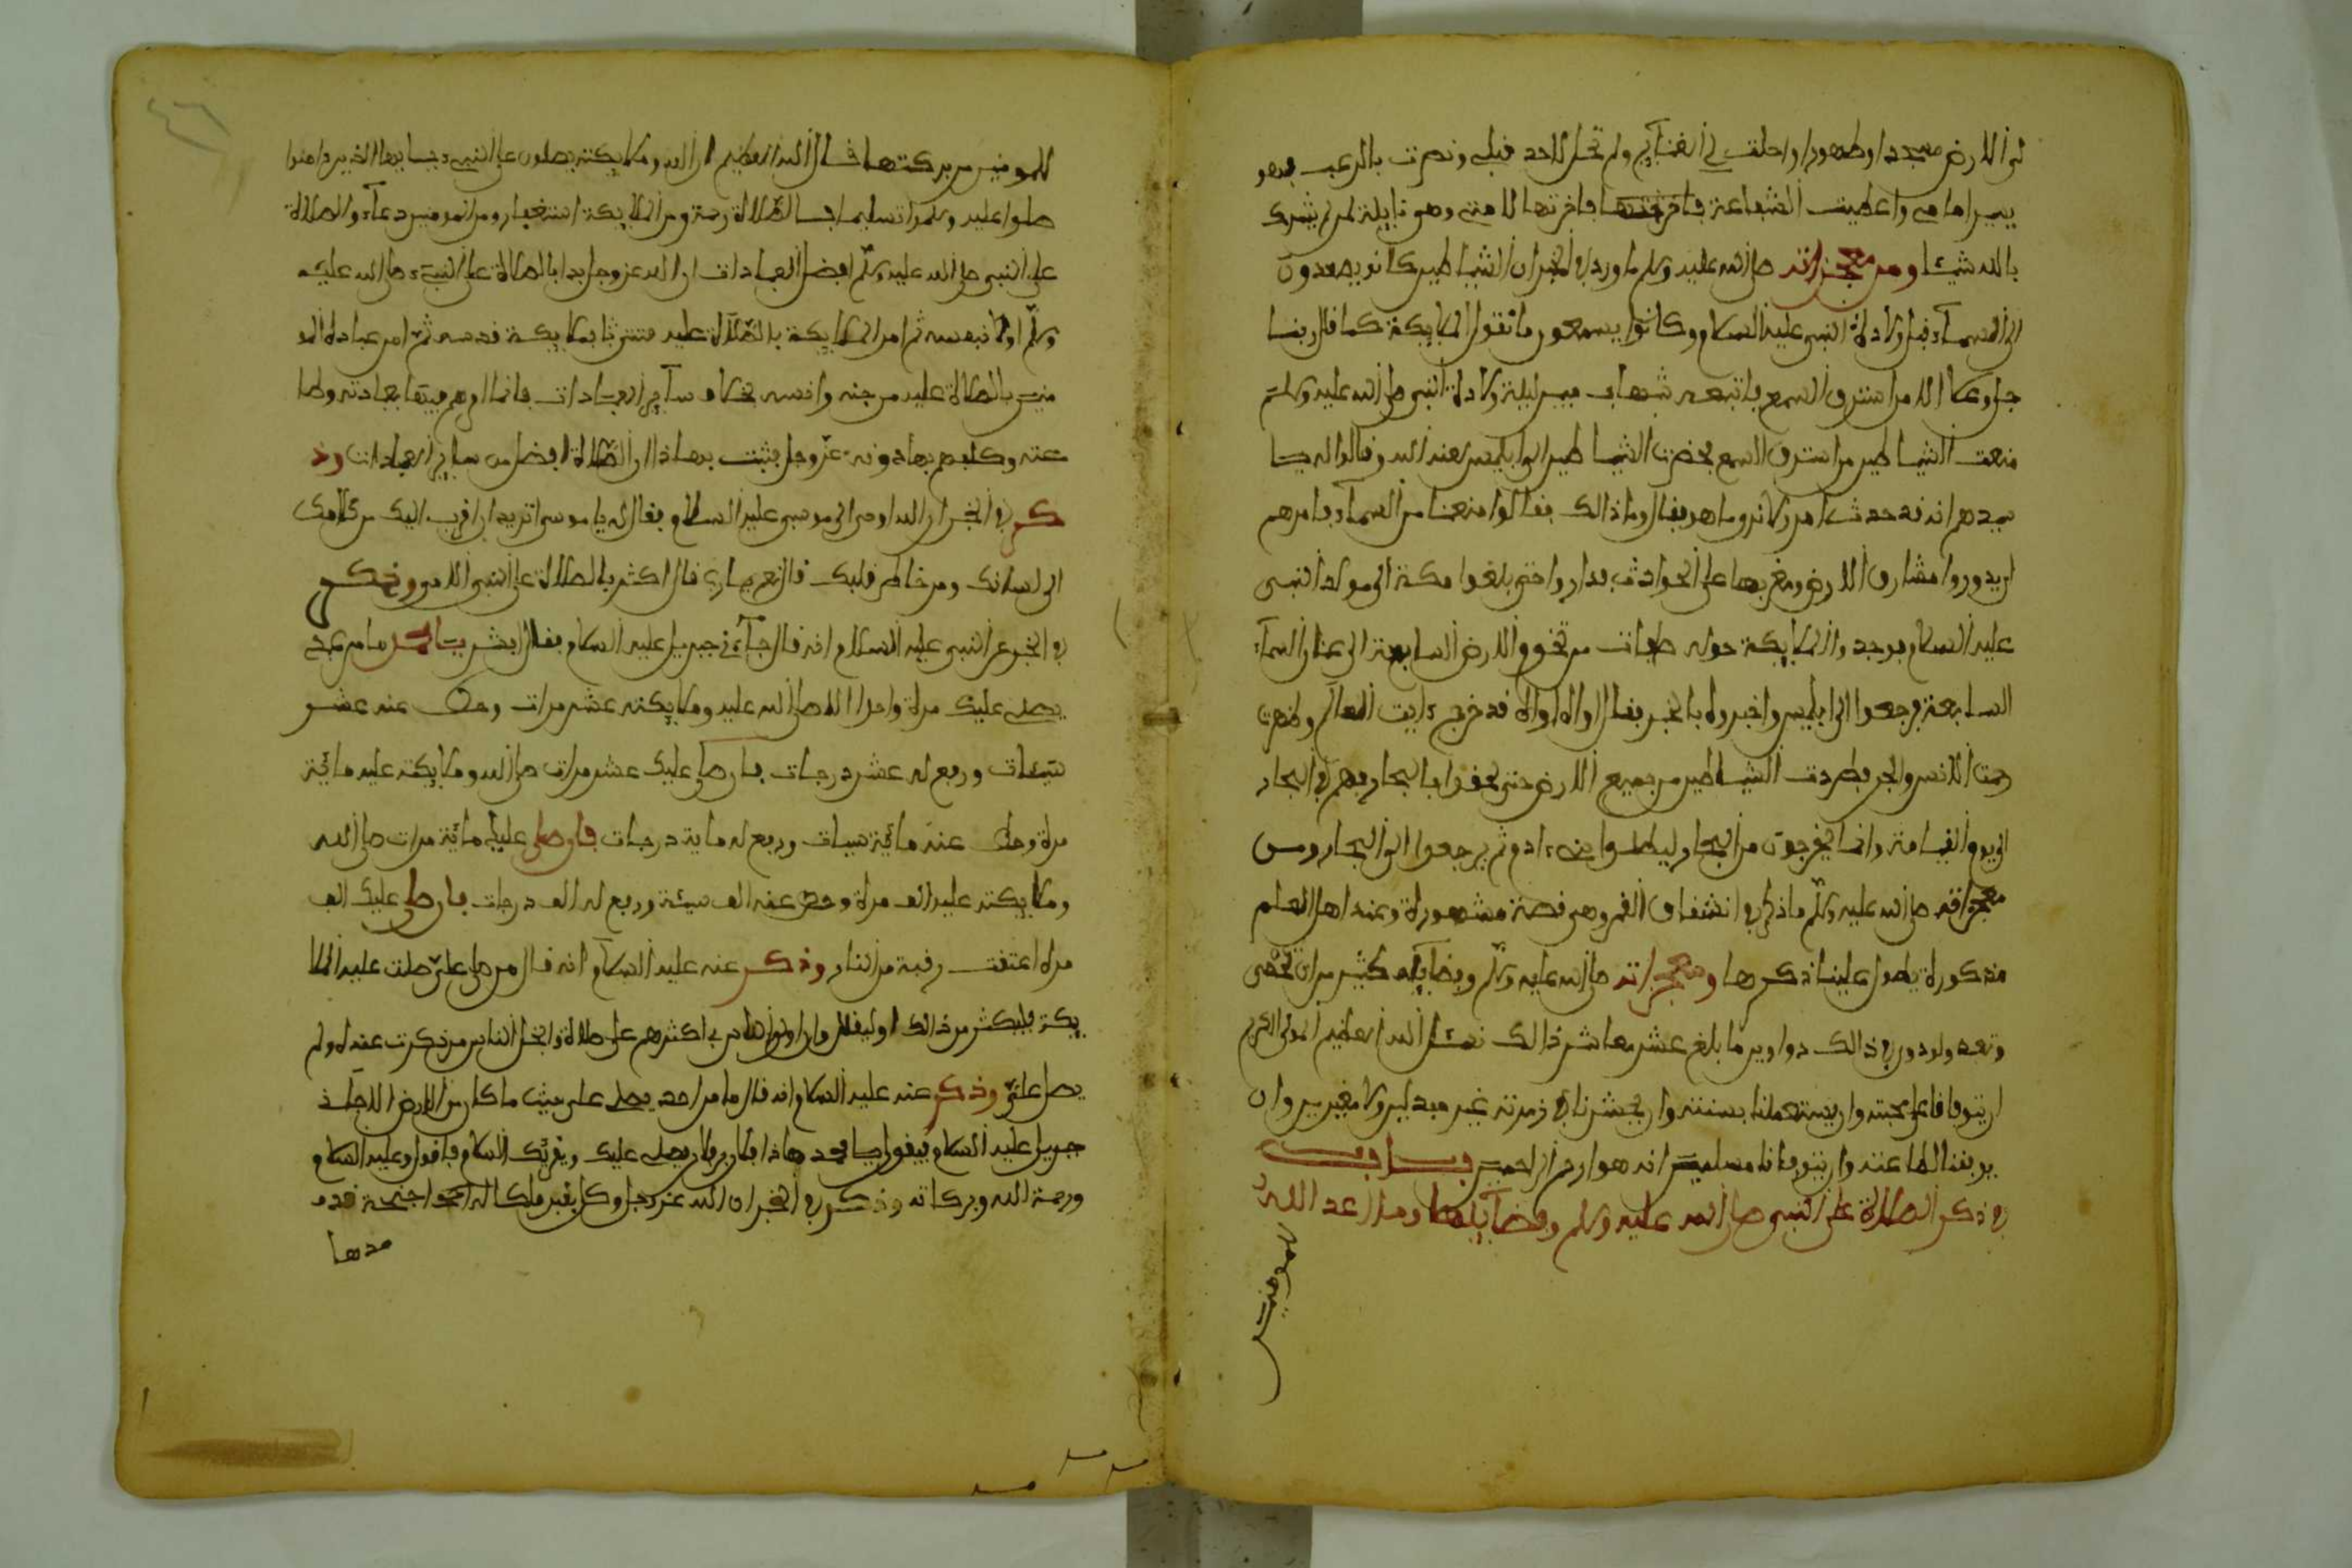 لى الارض مسجدا وطهورا واحلت لي الغنايم ولم تحل لاحد قبلي ونصرت بالرعب فهو
يسير امامى واعطيت الشفاعة فاخرتها لامتى وهى نايلة لمن لم يشرك
بالله شيئا ومن معجزاته صلى الله عليه وسلم ما ورد في الخبر ان الشياطين كانو يصعدون
الى السماء قبل ولادة النبي عليه السلام وكانوا يسمعون ما تقول الملايكة كما قال ربنا
جل وعلا الا من استرق السمع فاتبعه شهاب مبين ليلة ولادة النبي صلى الله عليه وسلم
منعت الشياطين من استرق السمع فحضرت الشياطين الى ابليس لعنه الله وقالوا له يا
سيدهم انه قد حدث امر قال وما هو فقال وما ذالك فقالوا منعنا من السماء فامرهم
ان يدوروا مشارق الارض ومغربها على الحوادث فداروا حتى بلغوا مكة الى مولد النبي
عليه السلام فوجدوا الملايكة حوله طبقات من تخوم الارض السابعة الى عنان السماء
السابعة فرجعوا الى ابليس واخبروه بالخبر فقال اواه اواه قد خرج رايت العالم
رحمت الانس والجن فطردت الشياطين من جميع الارض حتى لحقوا بالبحار فهم في البحار
الى يوم القيامة وانما يخرجون من البحار ليضلوا بنى ادم ثم يرجعوا الى البحار ومن
معجزاته صلى الله عليه وسلم ما ذكر في انشقاق القمر وهى قصة مشهورة وعند اهل العلم
مذكورة يطول علينا ذكرها ومعجزاته صلى الله عليه وسلم وفضايله كثير من ان تحصى
وتعد ولو دون في ذالك دواوين ما بلغ عشر معاشر ذالك نسئل الله العظيم المولى الكريم
ان يتوفانا على محبته وان يستعملنا بسنته وان يحشرنا في زمرته غير مبدلين ولا مغيرين وان
يوفقنا لطاعته وان يتوفانا مسلمين انه هو ارحم الراحمين باب في
في ذكر الصلاة على النبي صلى الله عليه وسلم وفضايلها وما اعد الله
للمومنين
للمومنين من بركتها قال الله العظيم ان الله وملايكته يصلون على النبي يايها الذين ءامنوا
صلوا عليه وسلموا تسليما فالصلاة رحمة ومن الملايكة استغفار ومن المومنين دعاء والصلاة
على النبي صلى الله عليه وسلم افضل العبادات ان الله عز وجل بدا بالصلاة على النبي صلى الله عليه
وسلم اولا بنفسه ثم امر الملايكة بالصلاة عليه فثنى بملايكة قدسه ثم امر عباده المو
منين بالصلاة عليه من جنه وانسه بخلاف ساير العبادات فانما امرهم فيها بعبادته
عنه وكلهم بها دونه عز وجل فثبت بهذا ان الصلاة افضل من ساير العبادات وذ
كر في الخبر ان الله اوحى الى موسى عليه السلام فقال له يا موسى اتريد ان اقرب اليك من كلامك
الى لسانك ومن خاطر قلبك قال نعم يا رب قال اكثر بالصلاة على النبي الامى وذكر
في الخبر عن النبي عليه السلام انه قال جاءني جبريل عليه السلام فقال ابشر يا محمد ما من عبد
يصلى عليك مرة واحدا الا صلى الله عليه وملايكته عشر مرات وحط عنه عشر
سيئات ورفع له عشر درجات فان صلى عليك عشر مرات صلى الله وملايكته عليه مائة
مرة وحط عنه مائة سيئات ورفع له ماية درجات فان صلى عليك مائة مرات صلى الله
وملايكته عليه الف مرة وحط عنه الف سيئة ورفع له الف درجات فان صلى عليك الف
مرة اعتقت رقبة من النار وذكر عنه عليه السلام انه قال من صلى علي صلت عليه الملا
يكة فليكثر من ذالك او ليقلل وان اولى الناس بى اكثرهم على صلاة وابخل الناس من ذكرت عنده ولم
يصل علي وذكر عنه عليه السلام انه قال ما من احد يصلى على حيث ما كان من الارض الا جاء
جبريل عليه السلام فيقول يا محمد هاذا فلان بن فلان يصلى عليك ويقرئك السلام فاقول وعليه السلام
ورحمة الله وبركاته وذكر في الخبر ان الله عز وجل وكل بقبر ملكا له اجنحة قد م
مدها